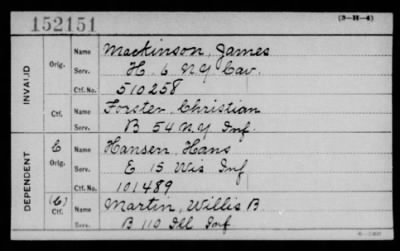 152151
(3-H-4)
INVALID
Orig.
Name Mackinson, James
Serv. H. 6 N.Y. Cav.
Ctf. No. 510258
Ctf.
Name Forster, Christian
Serv. B 54 N.Y. Inf.
DEPENDENT
C
Orig.
Name Hansen, Hans
Serv. E 15 Wis Inf
Ctf. No. 101489
(C)
Ctf.
Name Martin, Willis B.
Serv. B 110 Ill Inf